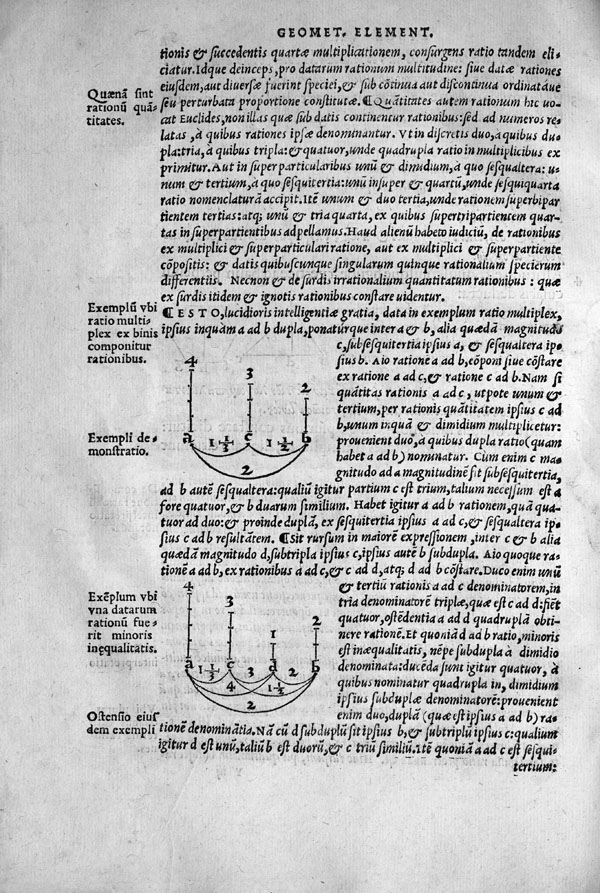 GEOMET. ELEMENT.
tionis & succedentis quartæ multiplicationem, consurgens ratio tandem eli-
ciatur. Idque deinceps, pro datarum rationum multitudine: siue datæ rationes
eiusdem, aut diuersæ fuerint speciei, & sub cōtinua aut discontinua ordinatáue
Quænā sint
rationū quā-
titates.
seu perturbata proportione constitutæ. ¶ Quātitates autem rationum hic uo-
cat Euclides, non illas quæ sub datis continentur rationibus: sed ad numeros re-
latas, à quibus rationes ipsæ denominantur. Vt in discretis duo, à quibus du-
pla: tria, à quibus tripla: & quatuor, unde quadrupla ratio in multiplicibus ex
primitur. Aut in superparticularibus unū & dimidium, à quo sesqualtera: u-
num & tertium, à quo sesquitertia: unū insuper & quartū, unde sesquiquarta
ratio nomenclaturā accipit. Itē unum & duo tertia, unde rationem superbipar-
tientem tertias: atq; unū & tria quarta, ex quibus supertripartientem quar-
tas in superpartientibus adpellamus. Haud alienū habeto iudiciū, de rationibus
ex multiplici & superparticulari ratione, aut ex multiplici & superpartiente
cōpositis: & datis quibuscunque singularum quinque rationalium specierum
differentiis. Necnon & de surdis irrationalium quantitatum rationibus: quæ
ex surdis itidem & ignotis rationibus constare uidentur.
Exemplū vbi
ratio multi-
plex ex binis
componitur
rationibus.
¶ ESTO, lucidioris intelligentiæ gratia, data in exemplum ratio multiplex,
ipsius inquam a ad b dupla, ponaturque inter a & b, alia quædā magnitudo
c, subsesquitertia ipsius a, & sesqualtera ip-
sius b. Aio ratione a ad b, cōponi siue cōstare
ex ratione a ad c, & ratione c ad b. Nam si
quātitas rationis a ad c, utpote unum &
tertium, per rationis quātitatem ipsius c ad
b, unum inquā & dimidium multiplicetur:
prouenient duo, à quibus dupla ratio (quam
habet a ad b) nominatur. Cum enim c ma-
gnitudo ad a magnitudinē sit subsesquitertia,
4
3
2
a 1 1/3 c 1 1/2 b
2
Exempli de-
monstratio.
ad b autē sesqualtera: qualiū igitur partium c est trium, talium necessum est a
fore quatuor, & b duarum similium. Habet igitur a ad b rationem, quā qua-
tuor ad duo: & proinde duplā, ex sesquitertia ipsius a ad c, & sesqualtera ip-
sius c ad b resultātem. ¶ Sit rursum in maiorē expressionem, inter c & b alia
quædā magnitudo d, subtripla ipsius c, ipsius autē b subdupla. Aio quoque ra-
tionē a ad b, ex rationibus a ad c, & c ad d, atq; d ad b cōstare. Duco enim unū
Exēplum vbi
vna datarum
rationū fue-
rit minoris
inęqualitatis.
& tertiū rationis a ad c denominatorem, in
tria denominatorē triplæ, quæ est c ad d: fiēt
quatuor, ostēdentia a ad d quadruplā obti-
nere rationē. Et quoniā d ad b ratio, minoris
est inæqualitatis, nēpe subdupla à dimidio
denominata: ducēda sunt igitur quatuor, à
quibus nominatur quadrupla in, dimidium
ipsius subduplæ denominatorē: prouenient
enim duo, duplā (quæ est ipsius a ad b) ra-
4
3
1
2
a 1 1/3 c 3 d 2 b
4 1 1/2
2
Ostensio eius
dem exempli
tionē denominātia. Nā cū d subduplū sit ipsius b, & subtriplū ipsius c: qualium
igitur d est unū, taliū b est duorū, & c triū similiū. Itē quoniā a ad c est sesqui-
tertium: